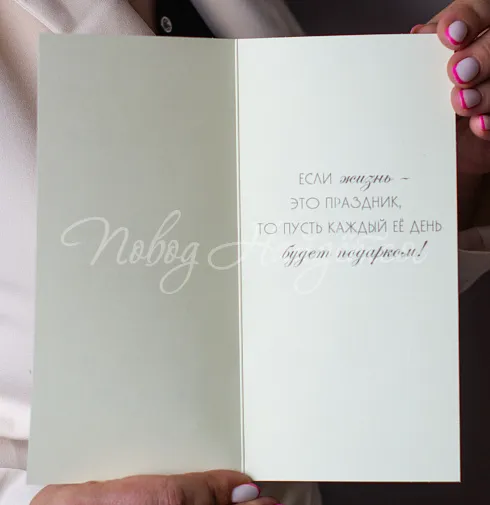 ЕСЛИ жизнь –
ЭТО ПРАЗДНИК,
ТО ПУСТЬ КАЖДЫЙ ЕЁ ДЕНЬ
будет подарком!
Повод